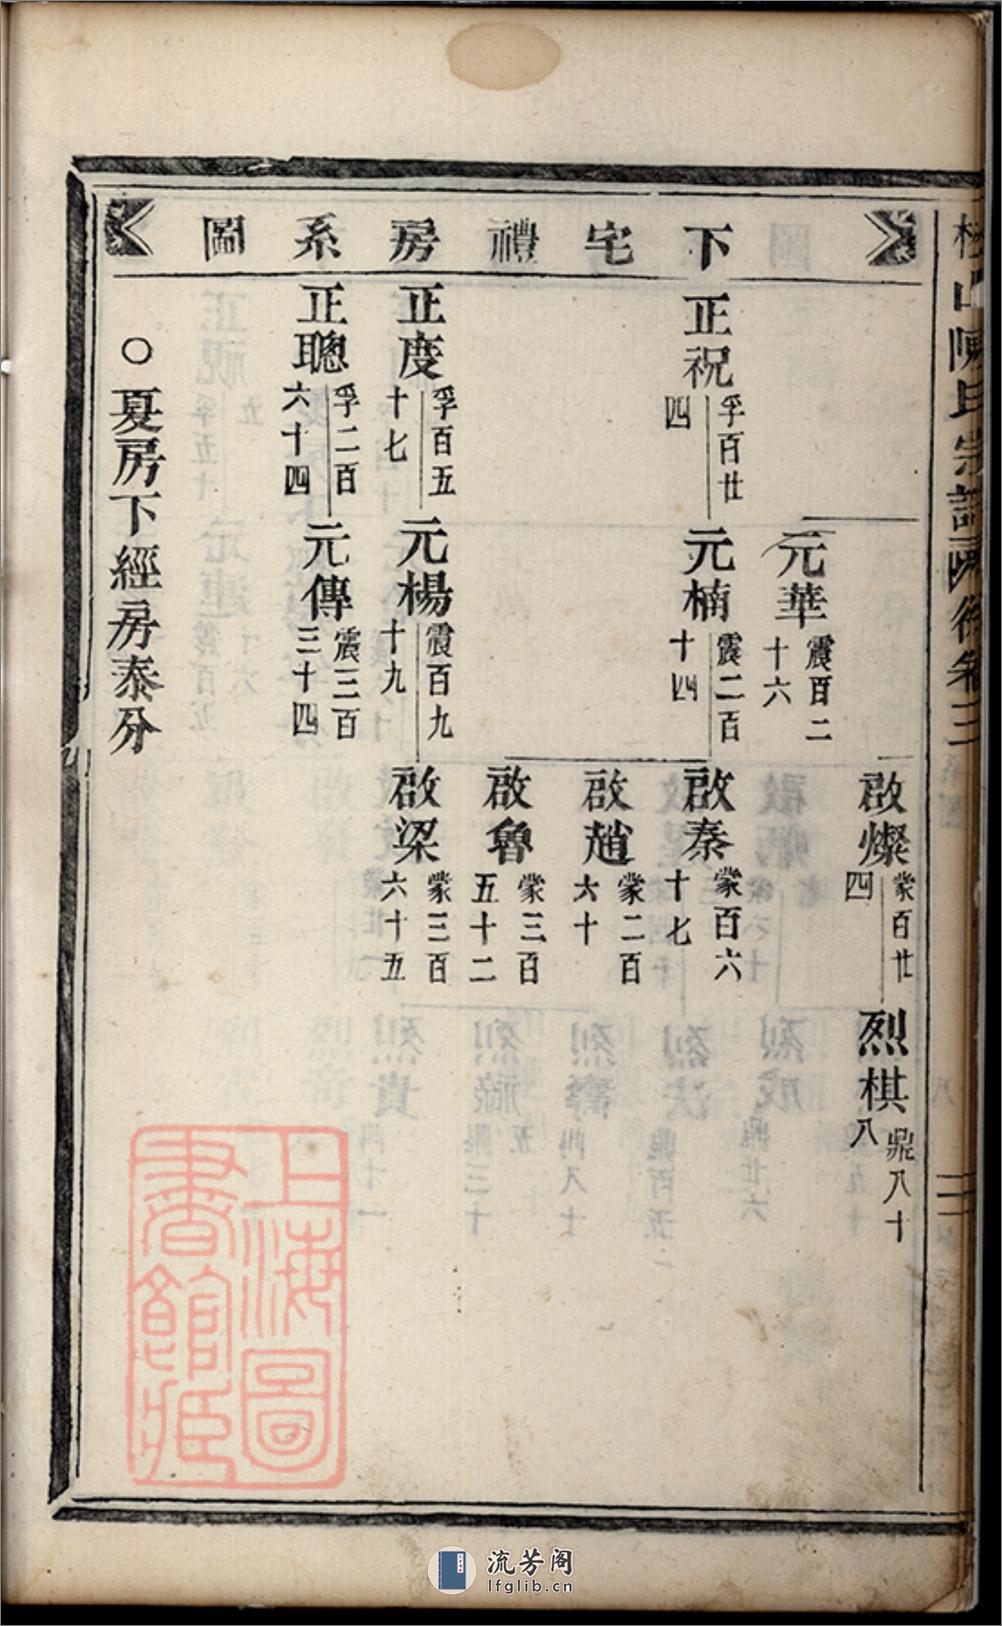 下宅禮房系圖
山陳氏宗譜
後卷三
啟燦 蒙百廿四
烈棋 鼎八十八
元華 震百二十六
正祝 孚百廿四
元楠 震二百十四
啟秦 蒙百六十七
啟趙 蒙二百六十
啟魯 蒙三百五十二
正度 孚百五十七
元楊 震百九十九
啟梁 蒙三百六十五
正聰 孚二百六十四
元傳 震三百三十四
○夏房下經房泰分
上海圖
書館藏
流芳阁
lfglib.cn